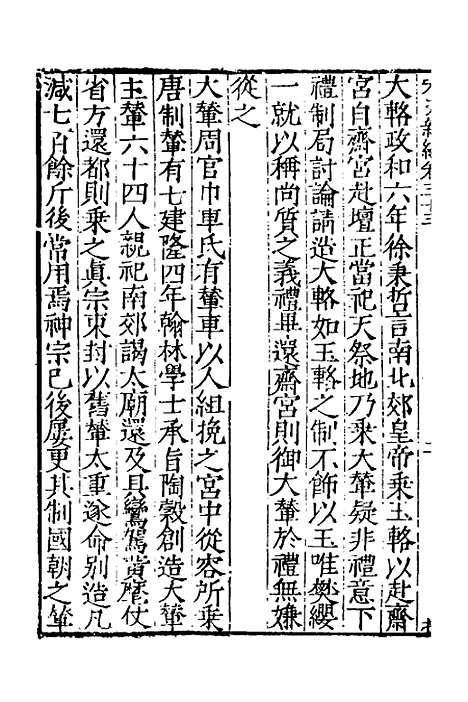 大輅政和六年徐秉哲言南北郊皇帝乘玉輅以赴齋
宮自齋宮赴壇正當祀天祭地乃乗大輦疑非禮意下
禮制局討論請造大輅如玉輅之制不飾以玉唯樊纓
一就以稱尚質之義禮畢還齋宮則御大輦於禮無嫌
從之
大輦周官巾車氏有輦車以人組挽之宮中從容所乗
唐制輦有七建隆四年翰林學士承旨陶穀創造大輦
主輦六十四人親祀南郊謁太廟還及具鸞駕黄麾仗
省方還都則乗之真宗東封以舊輦太重遂命别造凡
減七百餘斤後常用焉神宗已後屢更其制國朝之輦